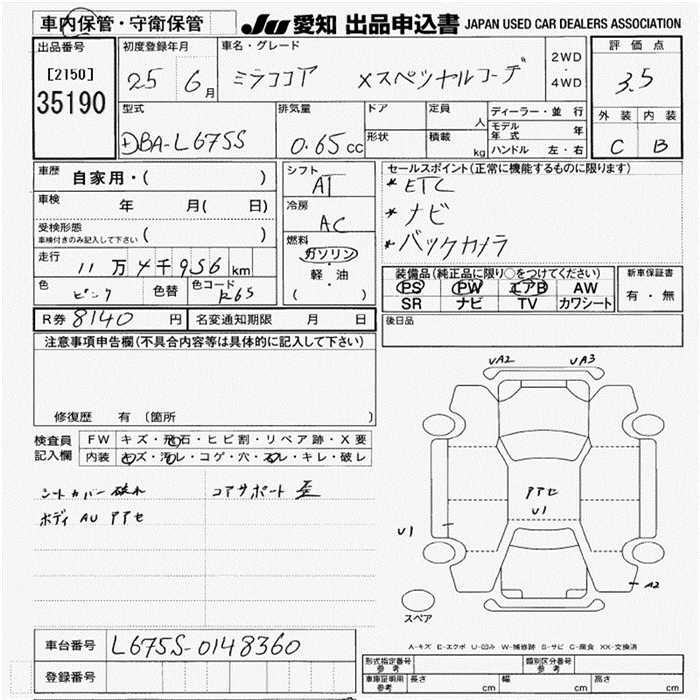 車内保管・守衛保管
JU 愛知 出品申込書 JAPAN USED CAR DEALERS ASSOCIATION
出品番号
[2150]
35190
初度登録年月
25 6月
車名・グレード
ミラココア Xスペシャルコーデ
2WD
・
4WD
評価点
3.5
外装 内装
C B
型式
DBA-L675S
排気量
0.65cc
ドア
形状
定員 人
積載 kg
ディーラー・並行
モデル年式 年
ハンドル 左・右
車歴 自家用・( )
車検 年 月( 日)
受検形態
車検付きのみ記入して下さい ( )
走行 11万4千956km
色 ピンク 色替 色コード R65
シフト
AT
冷房
AC
燃料
ガソリン
軽・油
( )
セールスポイント(正常に機能するものに限ります)
*ETC
*ナビ
*バックカメラ
装備品(純正品に限り○をつけてください)
PS PW エアB AW
SR ナビ TV カワシート
新車保証書
有・無
R券 8140円 名変通知期限 月 日
後日品
注意事項申告欄(不具合内容等は具体的に記入して下さい)
修復歴 有 (箇所
検査員記入欄
FW キズ・飛石・ヒビ割・リペア跡・X要
内装 キズ・汚レ・コゲ・穴・スレ・キレ・破レ
シートカバー破れ コアサポート歪
ボディ AU アアセ
UA2 UA3
アアセ
U1
U1
A2
スペア
A-キズ E-エクボ U-凹み W-補修跡 S-サビ C-腐食 XX-交換済
車台番号 L675S-0148360
登録番号
形式指定番号 参考 類別区分番号 参考
車庫証明用 参考 長さ cm 幅 cm 高さ cm